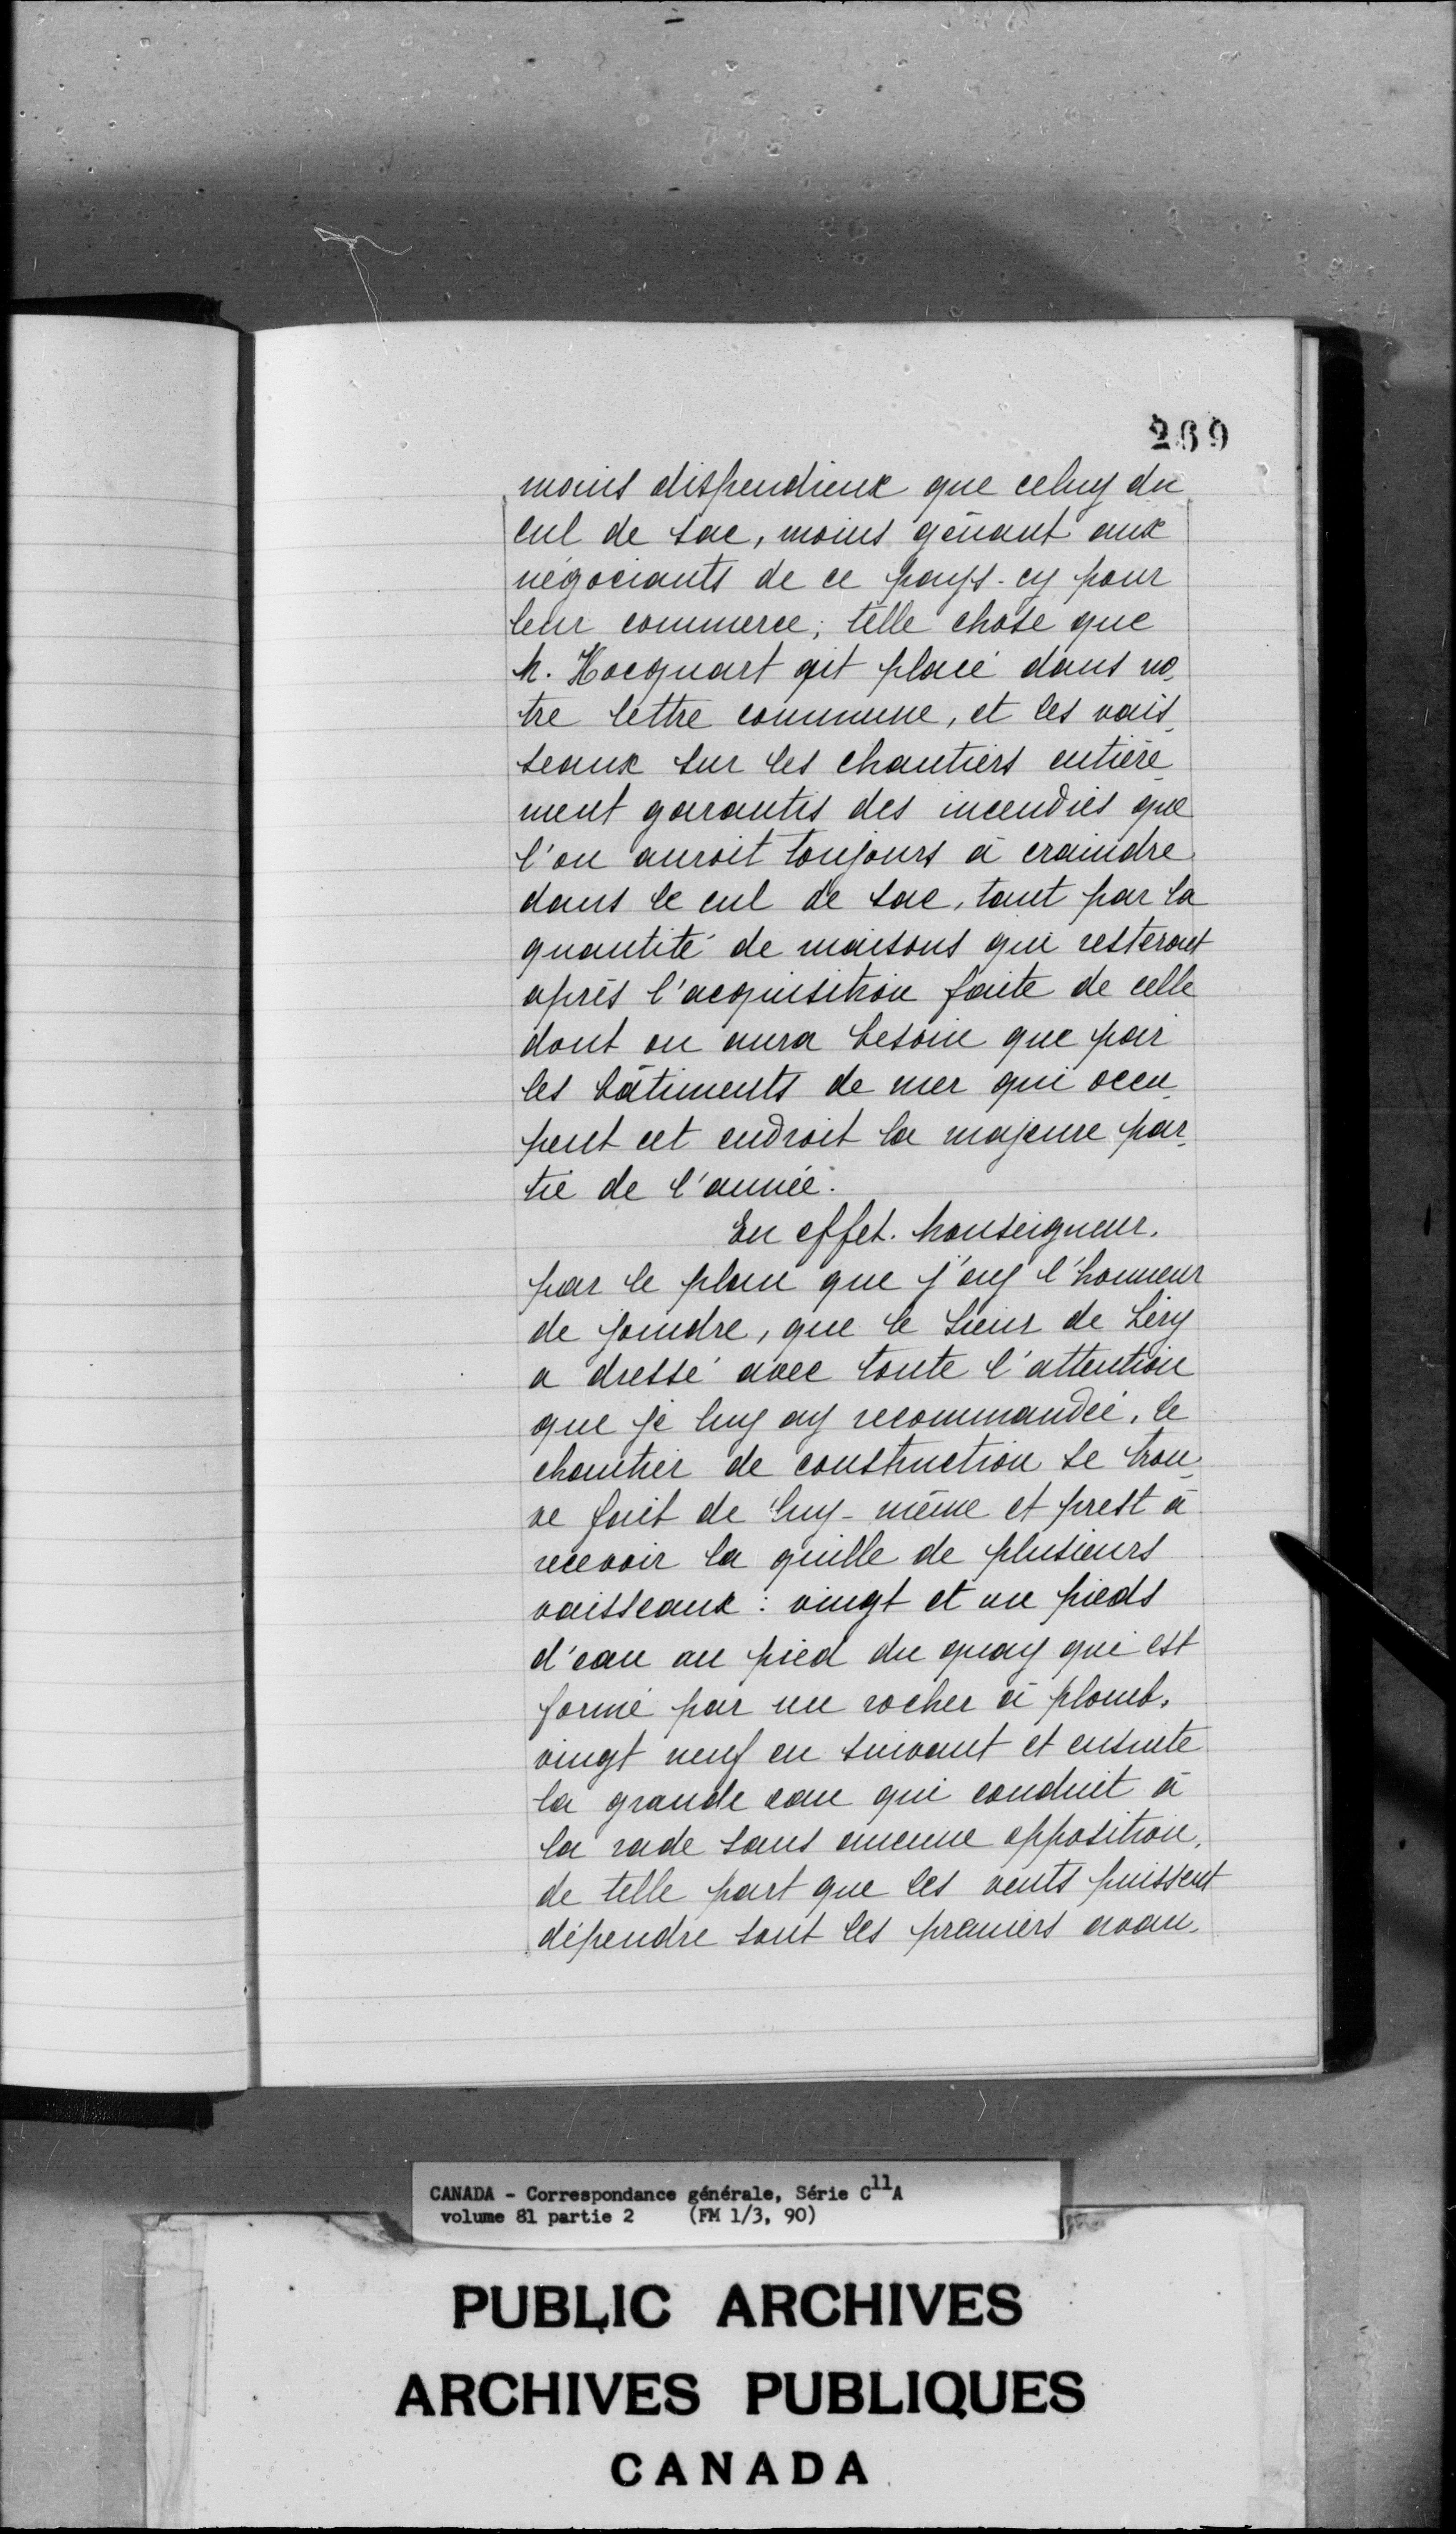 269
moins dispendieux que celuy du
cul de sac, moins gênant aux
négociants de ce pays-cy pour
leur commerce; telle chose que
M. Hocquart ait placé dans no-
tre lettre commune, et les vais-
seaux sur les chantiers entière-
ment garantis des incendies que
l'on auroit toujours à craindre
dans le cul de sac, tant par la
quantité de maisons qui resteront
après l'acquisition faite de celle
dont on aura besoin que par
les bâtiments de mer qui occu-
pent cet endroit la majeure par-
tie de l'année.
En effet. Monseigneur,
par le plan que j'ay l'honneur
de joindre, que le Sieur de Léry
a dressé avec toute l'attention
que je luy ay recommandée, le
chantier de construction se trou-
ve fait de luy-même et prest à
recevoir la quille de plusieurs
vaisseaux: vingt et un pieds
d'eau au pied du quay qui est
formé par un rocher à plomb,
vingt neuf en suivant et ensuite
la grande eau qui conduit à
la rade sans aucune opposition,
de telle part que les vents puissent
dépendre sont les premiers avan-
CANADA - Correspondance générale, Série C11A
volume 81 partie 2 (FM 1/3, 90)
PUBLIC ARCHIVES
ARCHIVES PUBLIQUES
CANADA